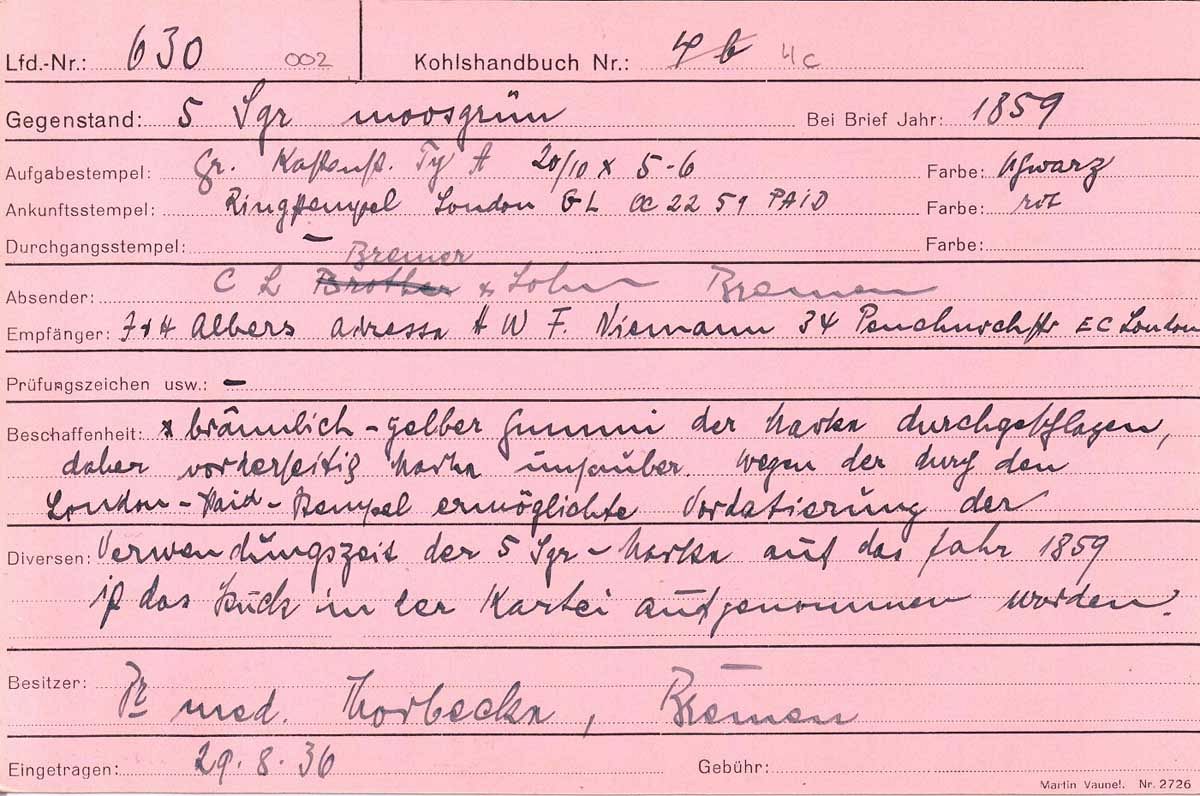 Lfd.-Nr.: 630 002 Kohlshandbuch Nr.: 4b 4c
Gegenstand: 5 Sgr moosgrün Bei Brief Jahr: 1859
Aufgabestempel: Gr. Kastenst. Ty A 20/10 x 5-6 Farbe: schwarz
Ankunftsstempel: Ringstempel London GL OC 22 59 PAID Farbe: rot
Durchgangsstempel: – Farbe:
Bremer
Absender: C L Brother & Sohn Bremen
Empfänger: J & H Albers adresse A W F. Niemann 34 Fenchurchstr EC London
Prüfungszeichen usw.: –
Beschaffenheit: bräunlich-gelber Gummi der Marke durchgeschlagen,
daher vorderseitig Marke unsauber. Wegen der durch den
London-Paid-Stempel ermöglichte Vordatierung der
Diversen: Verwendungszeit der 5 Sgr-Marke auf das Jahr 1859
ist das Stück in der Kartei aufgenommen worden.
Besitzer: Dr med. Thorbecke, Bremen
Eingetragen: 29.8.36 Gebühr:
Martin Vaupel. Nr. 2726